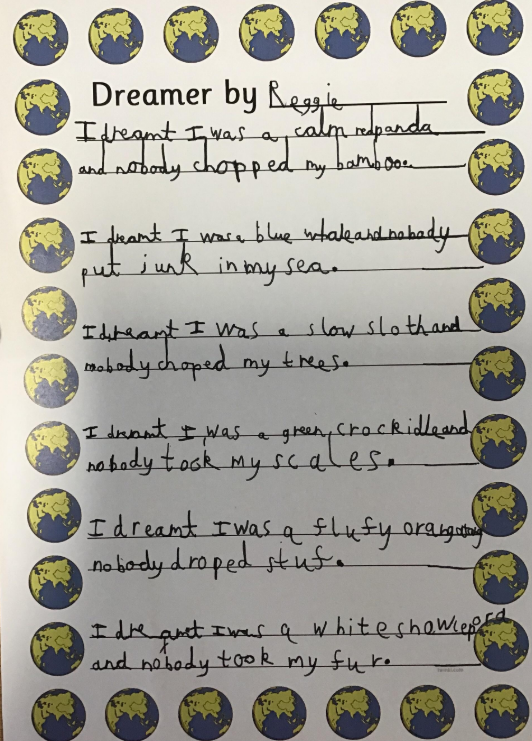 Dreamer by Reggie
I dreamt I was a calm redpanda
and nobody chopped my bamboo.
I dreamt I was a blue whale and nobody
put junk in my sea.
I dreamt I was a slow sloth and
nobody choped my trees.
I dreamt I was a green crockidle and
nobody took my scales.
I dreamt I was a flufy orangutang
nobody droped stuf.
I dreamt I was a white snow lepord
and nobody took my fur.